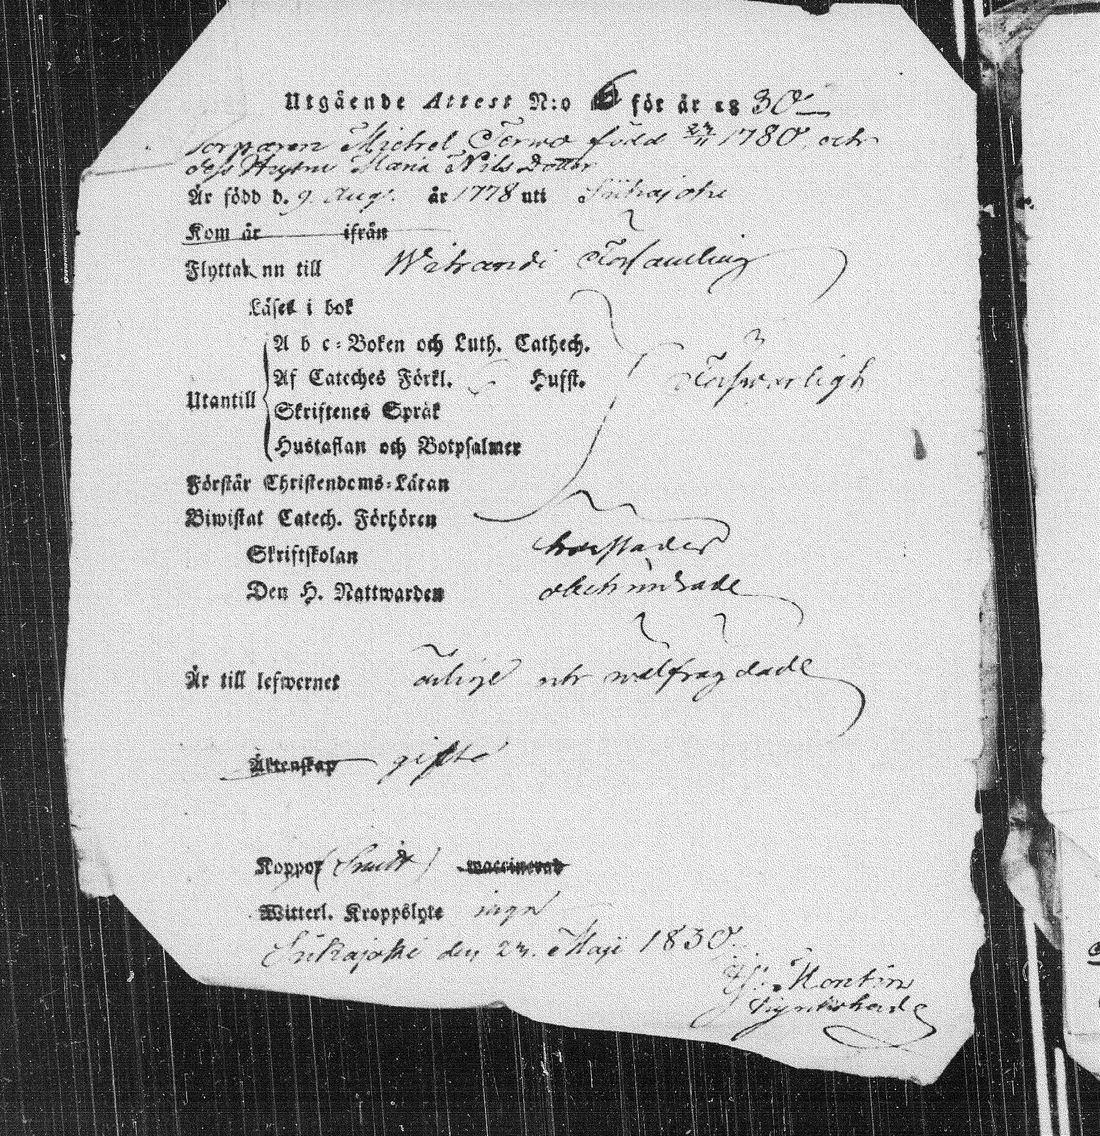 Utgående Attest N:o 6 för år 1830
Torparen Michel Torwo född 27/11 1780, och
dess Hustru Maria Nils Dotter
Är född d. 9 Aug. år 1778 uti Siikajoki
Kom år ifrån
Flyttar nn till Wihandi Församling
Läser i bok
A b c-Boken och Luth. Cathech.
Af Cateches Förkl. Hufst. Förswarligh
Utantill
Skriftenes Språk
Hustaflan och Botpsalmer
Förstår Christendoms-Läran
Biwistat Catech. Förhören
Skriftskolan
Den H. Nattwarden obehindrade
Är till lefwernet ärlige och wälfrägdade
Äktenskap gifte
Koppor vaccinerad
Witterl. Kroppslyte ingen
Siikajoki den 27. Maji 1830.
Montin